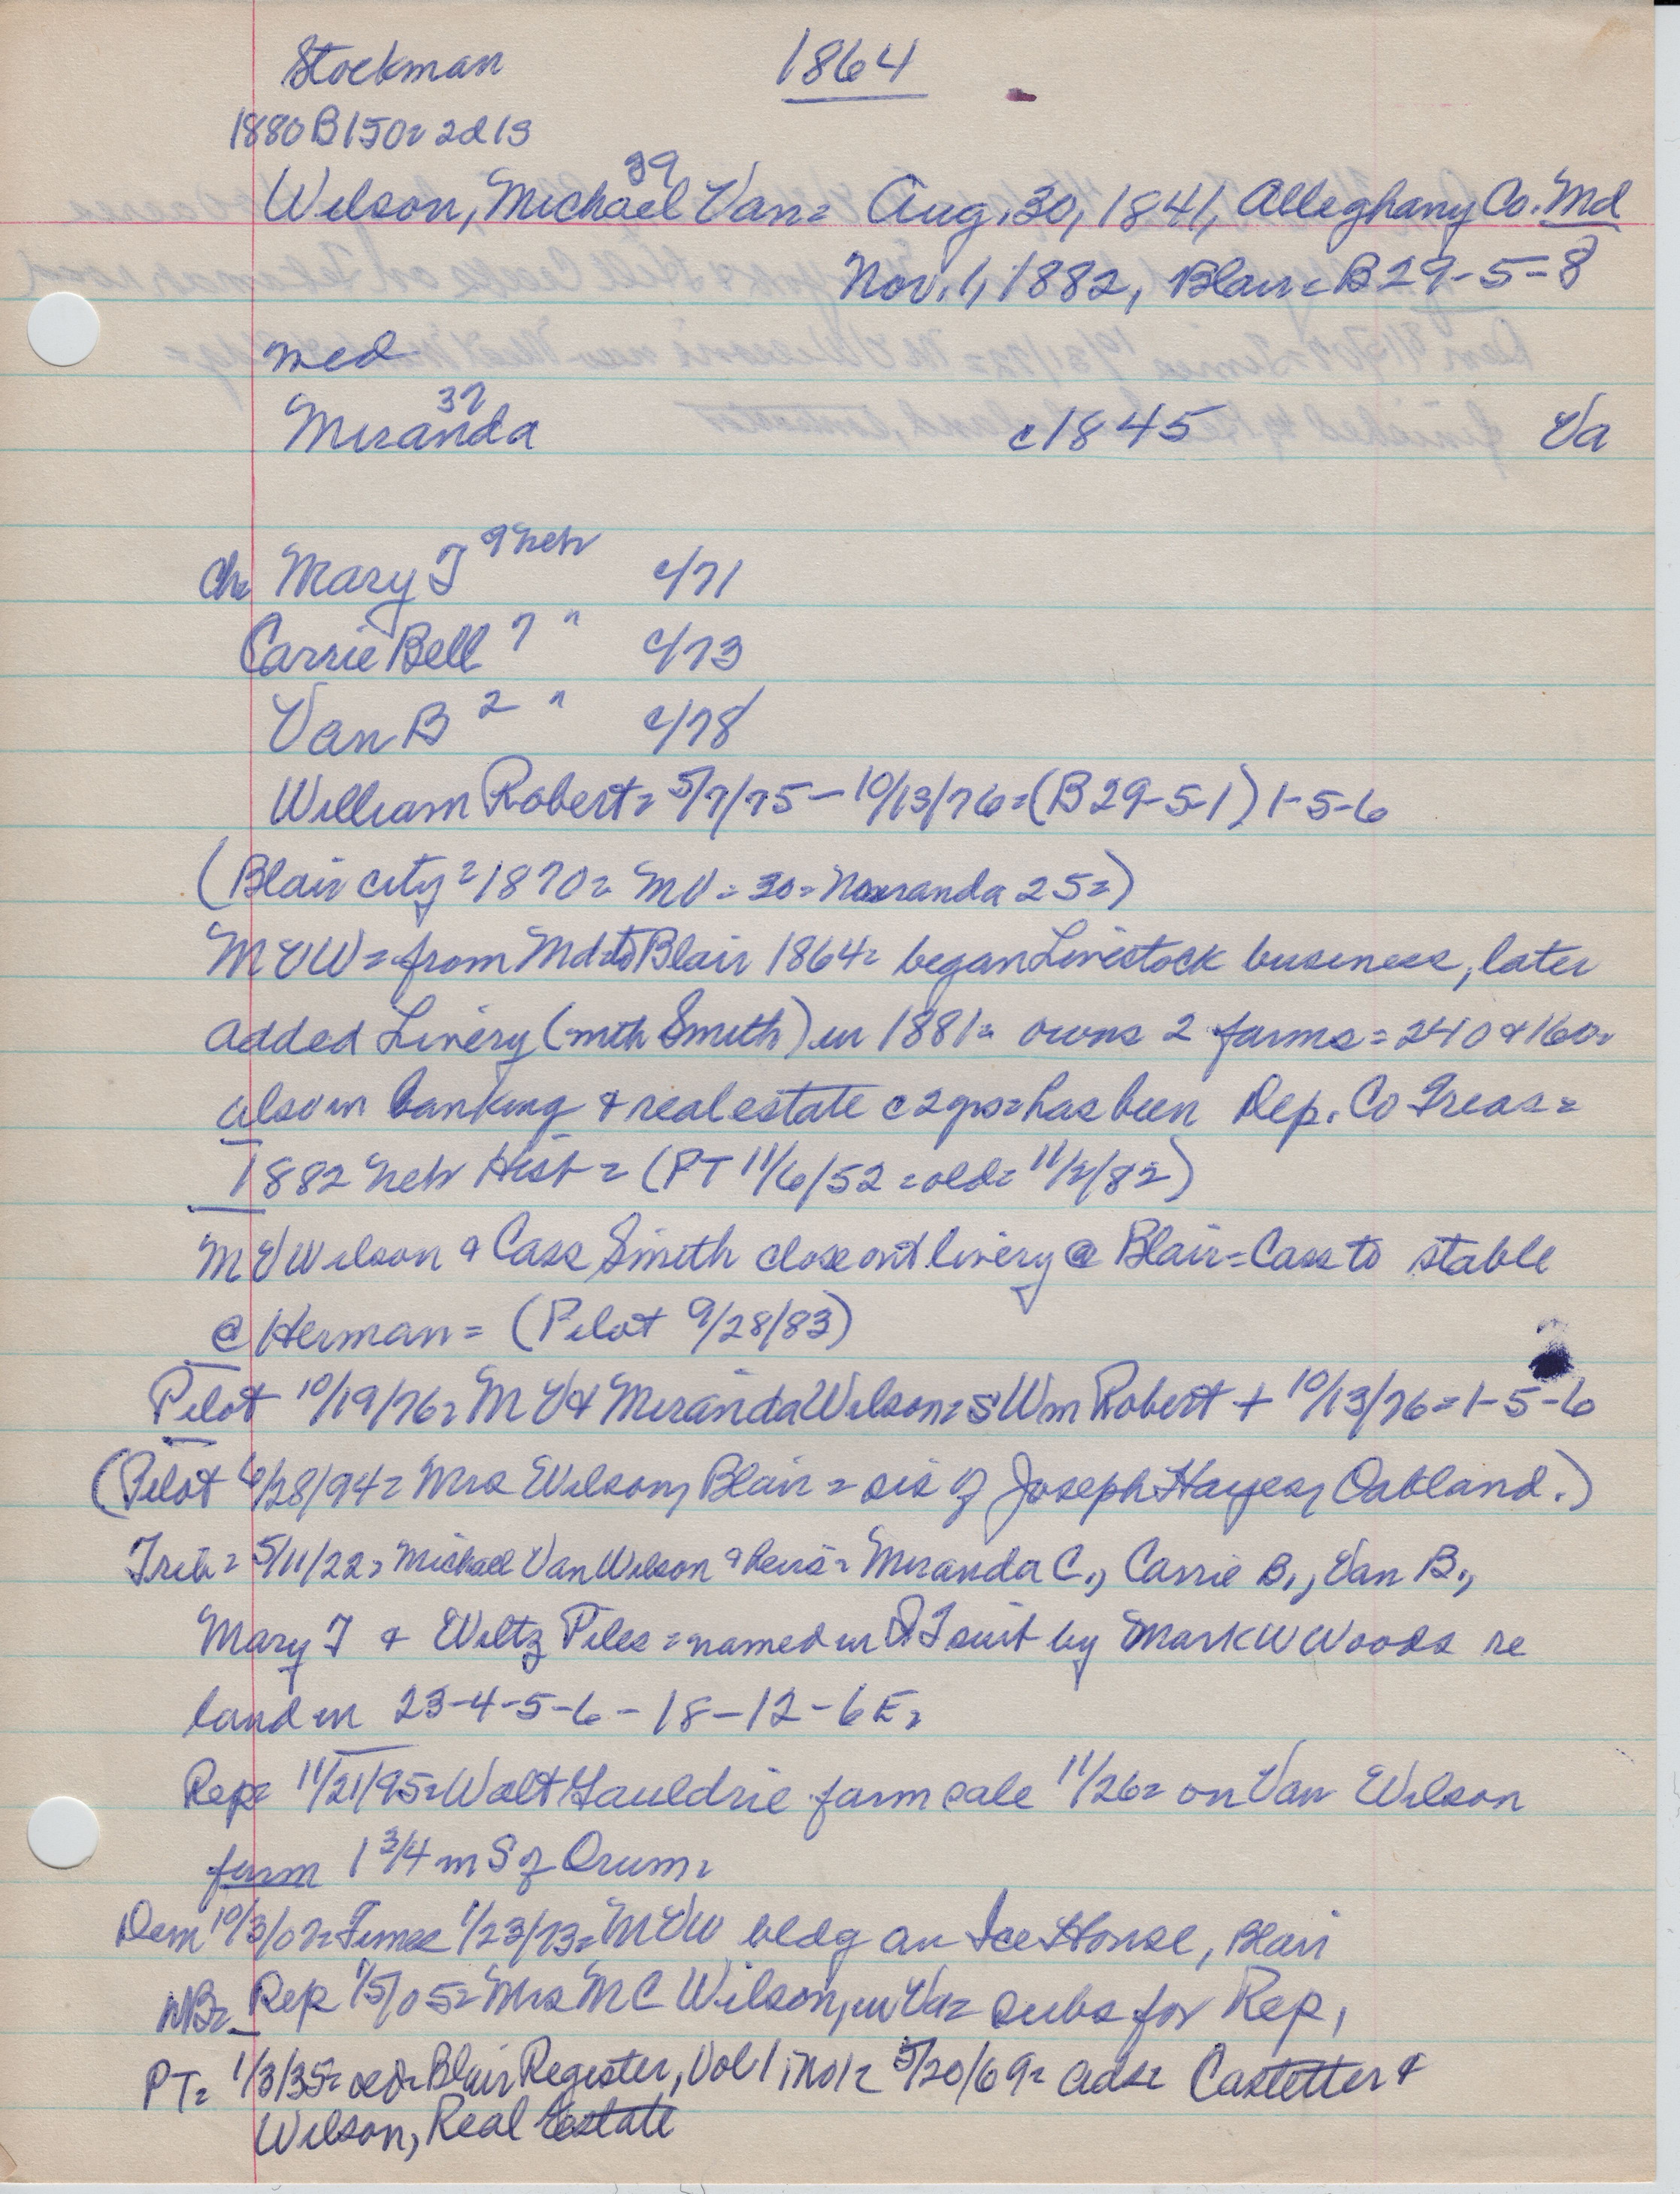 Stockman 1864
1880 B 150= 2d 13
39
Wilson, Michael Van= Aug. 30, 1841, Alleghany Co. Md
Nov. 1, 1882, Blair= B 29-5-8
med
37
Miranda c1845 Va
Ch= Mary J 9 Neb c/71
Carrie Bell 7 " c/73
Van B 2 " c/78
William Robert= 5/7/75 - 10/13/76=(B 29-5-1) 1-5-6
(Blair city=1870= MV=30= 25=)
MVW= from Md to Blair 1864= began Livestock business, later
added Livery (with Smith) in 1881= owns 2 farms=240 & 160=
also in banking & real estate c 2 yrs=has been Dep. Co Treas=
1882 Neb Hist= (PT 11/6/52=old= 11/2/82)
MV Wilson & Cass Smith close out livery @ Blair=Cass to stable
@ Herman= (Pilot 9/28/83)
Pilot 10/19/76= MV & Miranda Wilson=s Wm Robert + 10/13/76=1-5-6
(Pilot 6/28/94= Mrs Wilson, Blair= sis of Joseph Hayes, Oakland.)
Trib= 5/11/22= Michael Van Wilson & heirs= Miranda C., Carrie B., Van B.,
Mary J & Wiltz Piles=named in QT suit by Mark W Woods re
land in 23-4-5-6-18-12-6E=
Rep= 11/21/95=Walt Gauldrie farm sale 11/26= on Van Wilson
farm 1 3/4 m S of Orum=
Dem 10/3/07=Times 1/23/73=MVW bldg an Ice House, Blair
NB= Rep 1/5/05= Mrs MC Wilson, in Va= subs for Rep,
PT= 1/3/35= old= Blair Register, Vol 1, No 1= 5/20/69= ads= Castetter &
Wilson, Real Estate